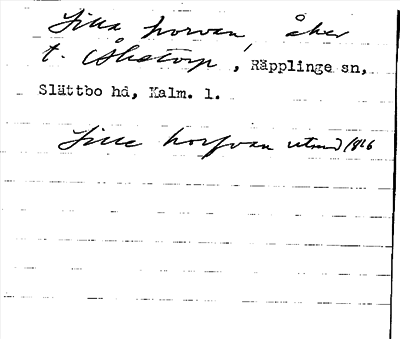 Lilla horvan, åker
t. Åketorp, Räpplinge sn,
Slättbo hd, Kalm. l.
Lille horfvan utmd 1826